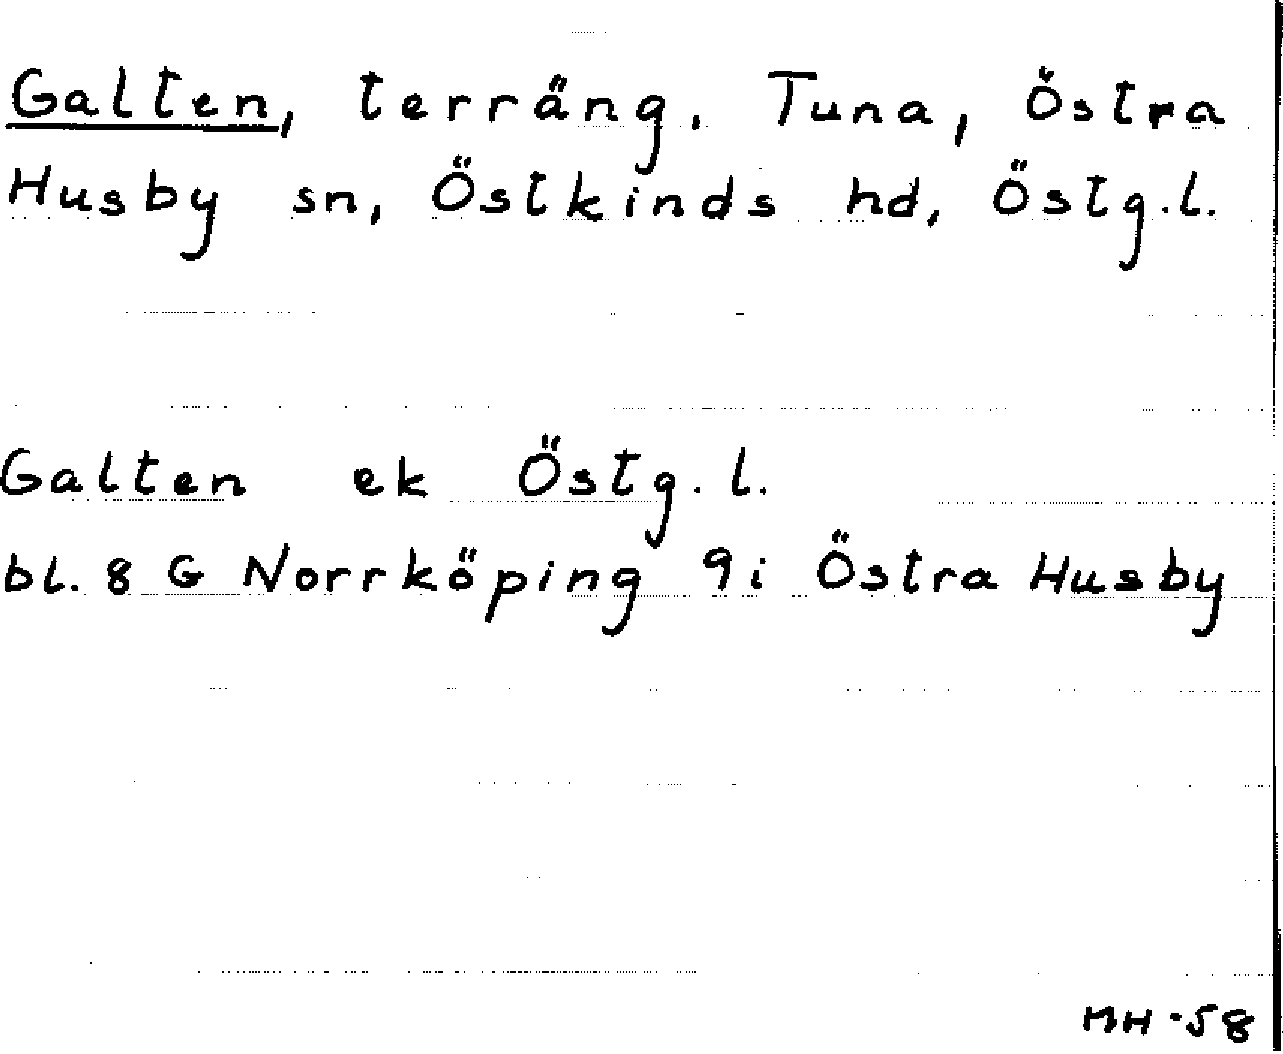 Galten, terräng. Tuna, Östra
Husby sn, Östkinds hd, Östg.l.
Galten ek Östg.l.
bl. 8 G Norrköping 9i Östra Husby
MH -58